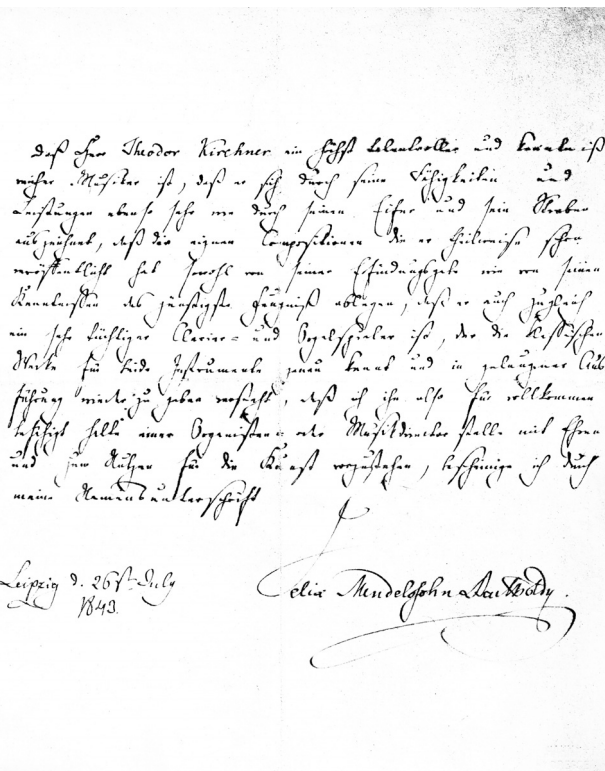 Daß Herr Theodor Kirchner ein höchst talentvoller und kenntniß
reicher Musiker ist, daß er sich durch seine Fähigkeiten und
Leistungen ebenso sehr wie durch seinen Eifer und sein Streben
auszeichnet, daß die eignen Compositionen die er theilweise schon
veröffentlicht hat sowohl von seiner Erfindungsgabe wie von seinen
Kenntnissen das günstigste Zeugniß ablegen, daß er auch zugleich
ein sehr tüchtiger Clavier- und Orgelspieler ist, der die klassischen
Werke für beide Instrumente genau kennt und in gelungener Aus
führung wieder zu geben versteht, daß ich ihn also für vollkommen
befähigt halte einer Organisten- oder Musikdirector stelle mit Ehren
und zum Nutzen für die Kunst vorzustehen, bescheinige ich durch
meine Namensunterschrift
Leipzig d. 26st July
1843.
Felix Mendelssohn Bartholdy.